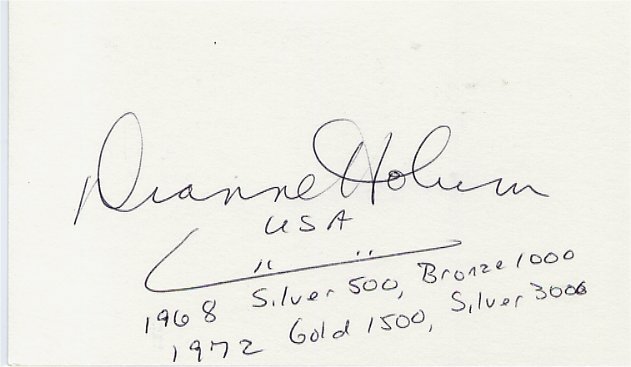 Dianne Holum
USA
1968 Silver 500, Bronze 1000
1972 Gold 1500, Silver 3000